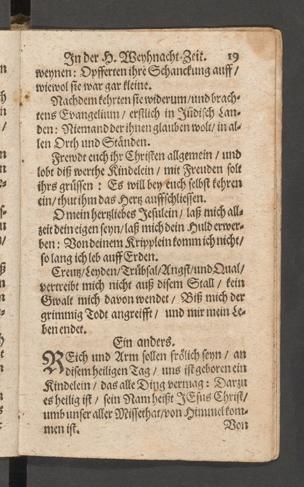 In der H. Weyhnacht-Zeit. 19
weynen: Opfferten ihre Schanckung auff /
wiewol sie war gar kleine.
Nachdem kehrten sie widerum / und brach-
tens Evangelium / erstlich in Jüdisch Lan-
den: Niemand der ihnen glauben wolt / in al-
len Orth und Ständen.
Frewdt euch ihr Christen allgemein / und
lobt diß werthe Kindelein / mit Freuden solt
ihrs grüssen: Es will bey euch selbst kehren
ein / thut ihm das Hertz auffschliessen.
O mein hertzliebes Jesulein / laß mich all-
zeit dein eigen seyn / laß mich dein Huld erwer-
ben: Von deinem Kripplein komm ich nicht /
so lang ich leb auff Erden.
Creutz / Leyden / Trübsal / Angst / und Qual /
vertreibt mich nicht auß disem Stall / kein
Gwalt mich davon wendet / Biß mich der
grimmig Todt angreifft / und mir mein Le-
ben endet.
Ein anders.
REich und Arm sollen frölich seyn / an
disem heiligen Tag / uns ist geboren ein
Kindelein / das alle Ding vermag: Darzu
es heilig ist / sein Nam heißt JEsus Christ /
umb unser aller Missethat / von Himmel kom-
men ist.
Von